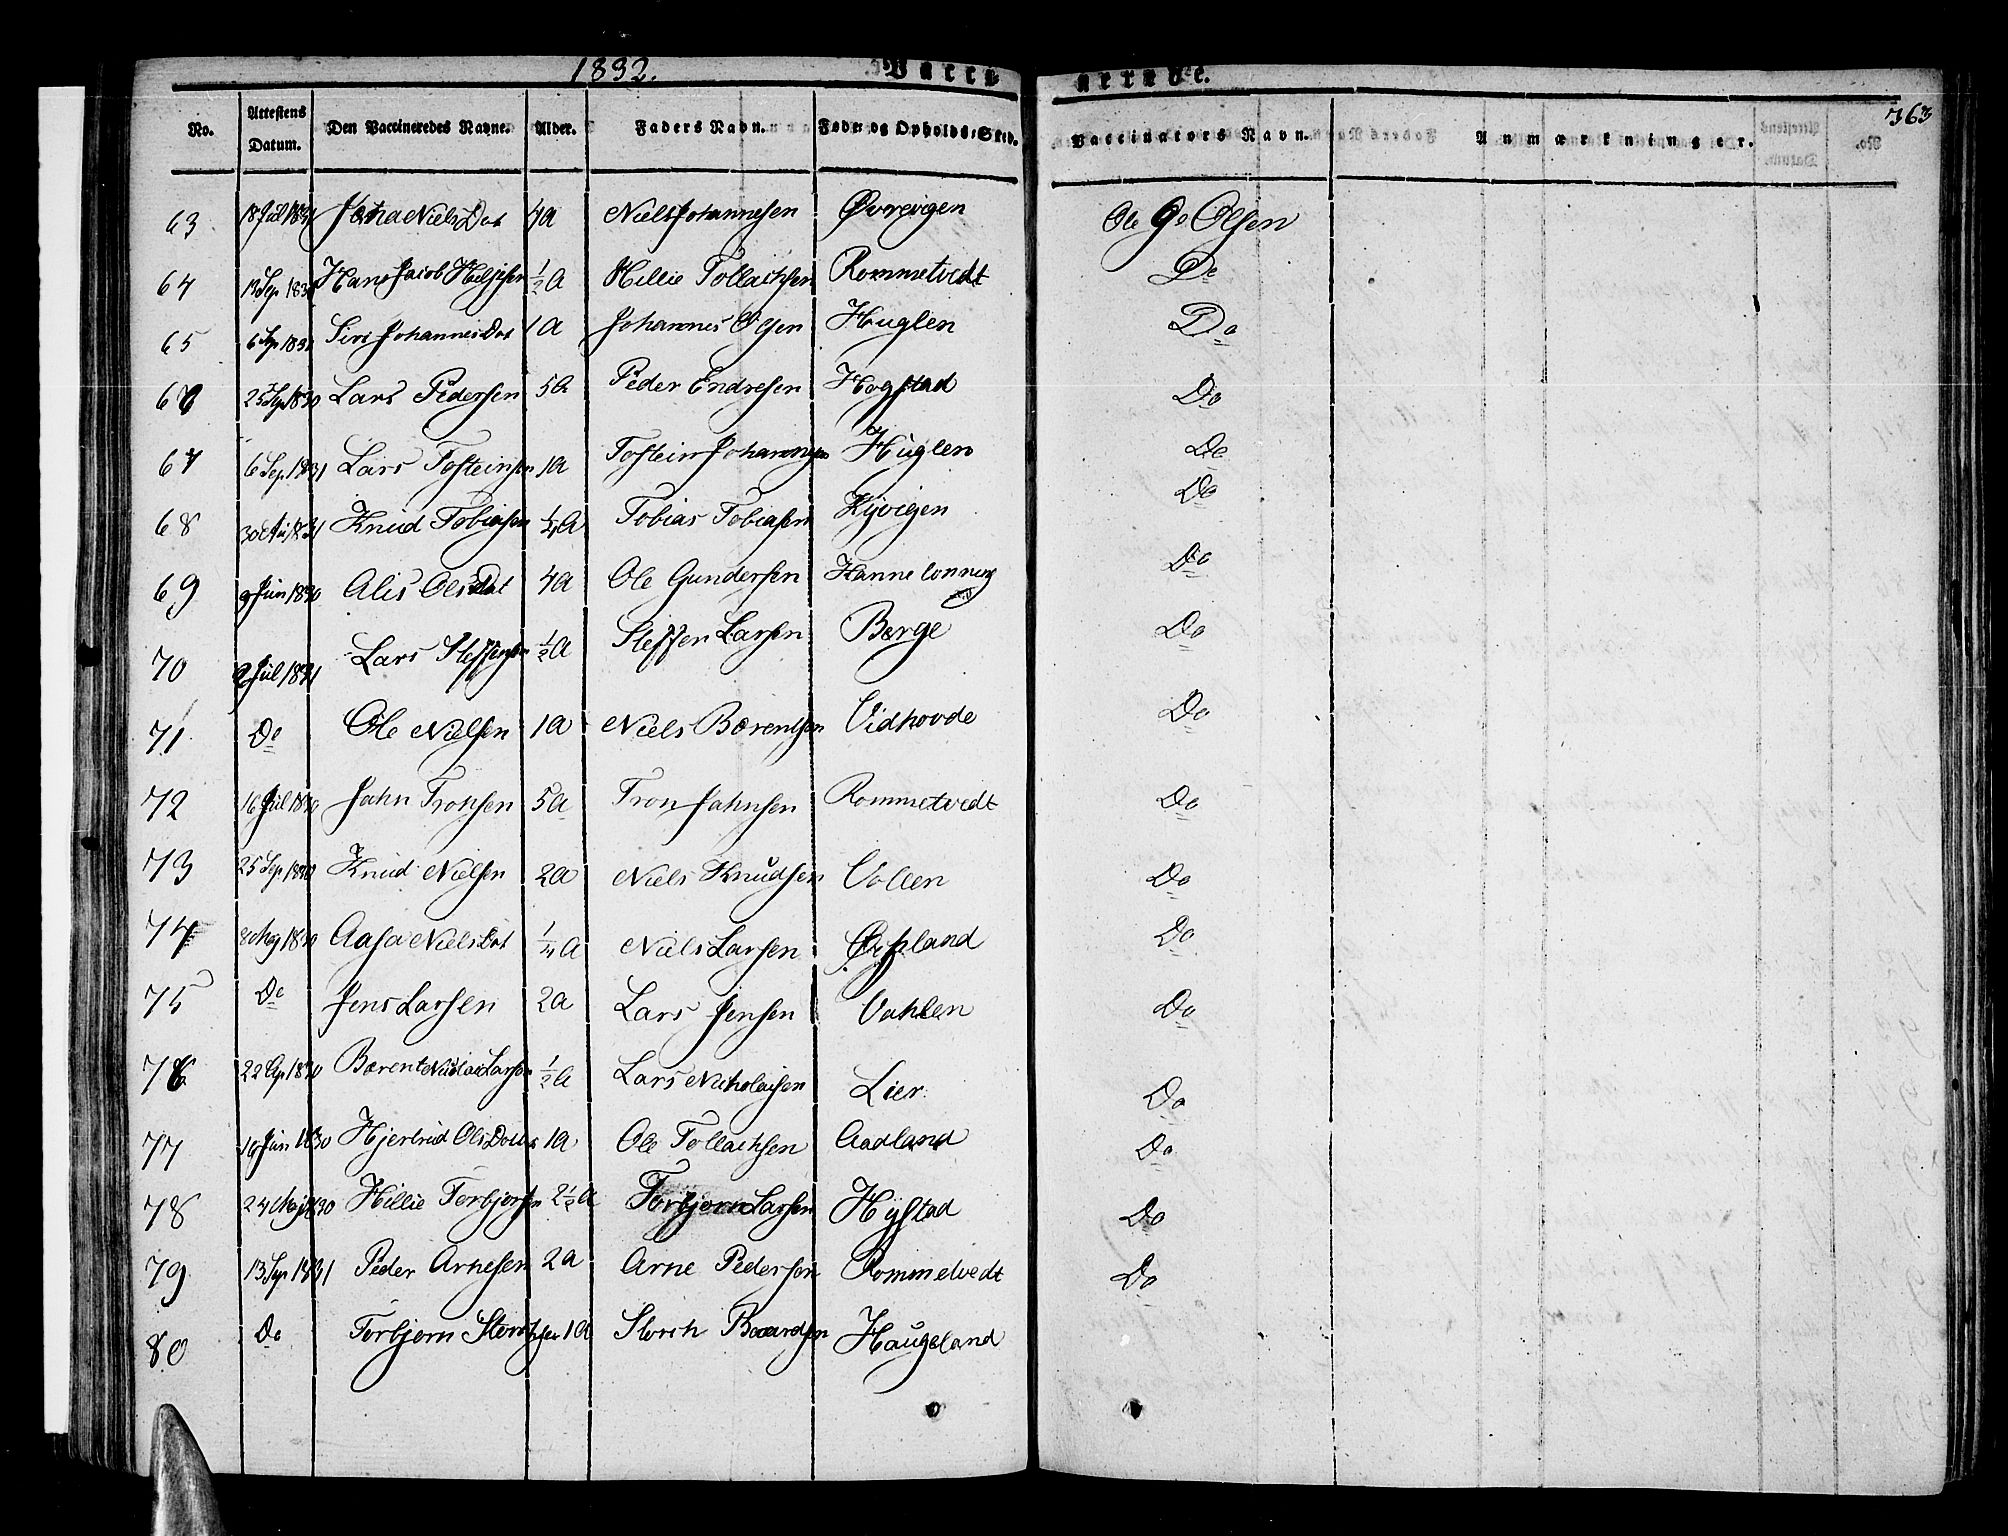 1832.
Vaccinerede.
363
No. Attestens Datum. Den Vaccineredes Navne. Alder. Faders Navn. Føde- og Opholds-Sted. Vaccinators Navn. Anmærkninger.
63 18 Jul 1831 Niels Dat 4a Niels Johannesen Øvrevigen Ole G. Olsen
64 13 Sep 183 Hans Jacob Helgesen ½a Hellie Tollachsen Rommetvedt Do
65 6 Sep 1831 Siri Johannes Dat 1a Johannes Olsen Huglen Do
66 25 Sep 1830 Lars Pedersen 5a Peder Endresen Hogstad Do
67 6 Sep 1831 Lars Tosteinsen 1a Tostein Johannesen Huglen Do
68 30 1831 Knud Tobiasen ¼a Tobias Tobiasen Kyvigen Do
69 9 Jun 1830 Alis Ols Dat 4a Ole Gundersen Hannelonning Do
70 2 Jul 1831 Lars Steffensen ½a Steffen Larsen Berge Do
71 Do Ole Nielsen 1a Niels Bærentsen Vidhovde Do
72 16 Jul 1830 Jahn Tronsen 5a Tron Jahnsen Rommetvedt Do
73 25 Sep 1830 Knud Nielsen 2a Niels Knudsen Vallen Do
74 1830 Aasa Niels Dat ¼a Niels Larsen Do
75 Do Jens Larsen 2a Lars Jensen Vahlen Do
76 22 Ap 1830 Bærent Nicolai Larsen ½a Lars Nicholaisen Lier Do
77 Jun 1830 Hjertrud Ols 1a Ole Tollachsen Aadland Do
78 24 Maj 1830 Hellie Torbjorsen 2½a Torbjorn Larsen Hystad Do
79 13 Sep 1831 Peder Arnesen 2a Arne Pedersen Rommetvedt Do
80 Do Torbjorn Storchsen 1a Storch Baardsen Haugeland